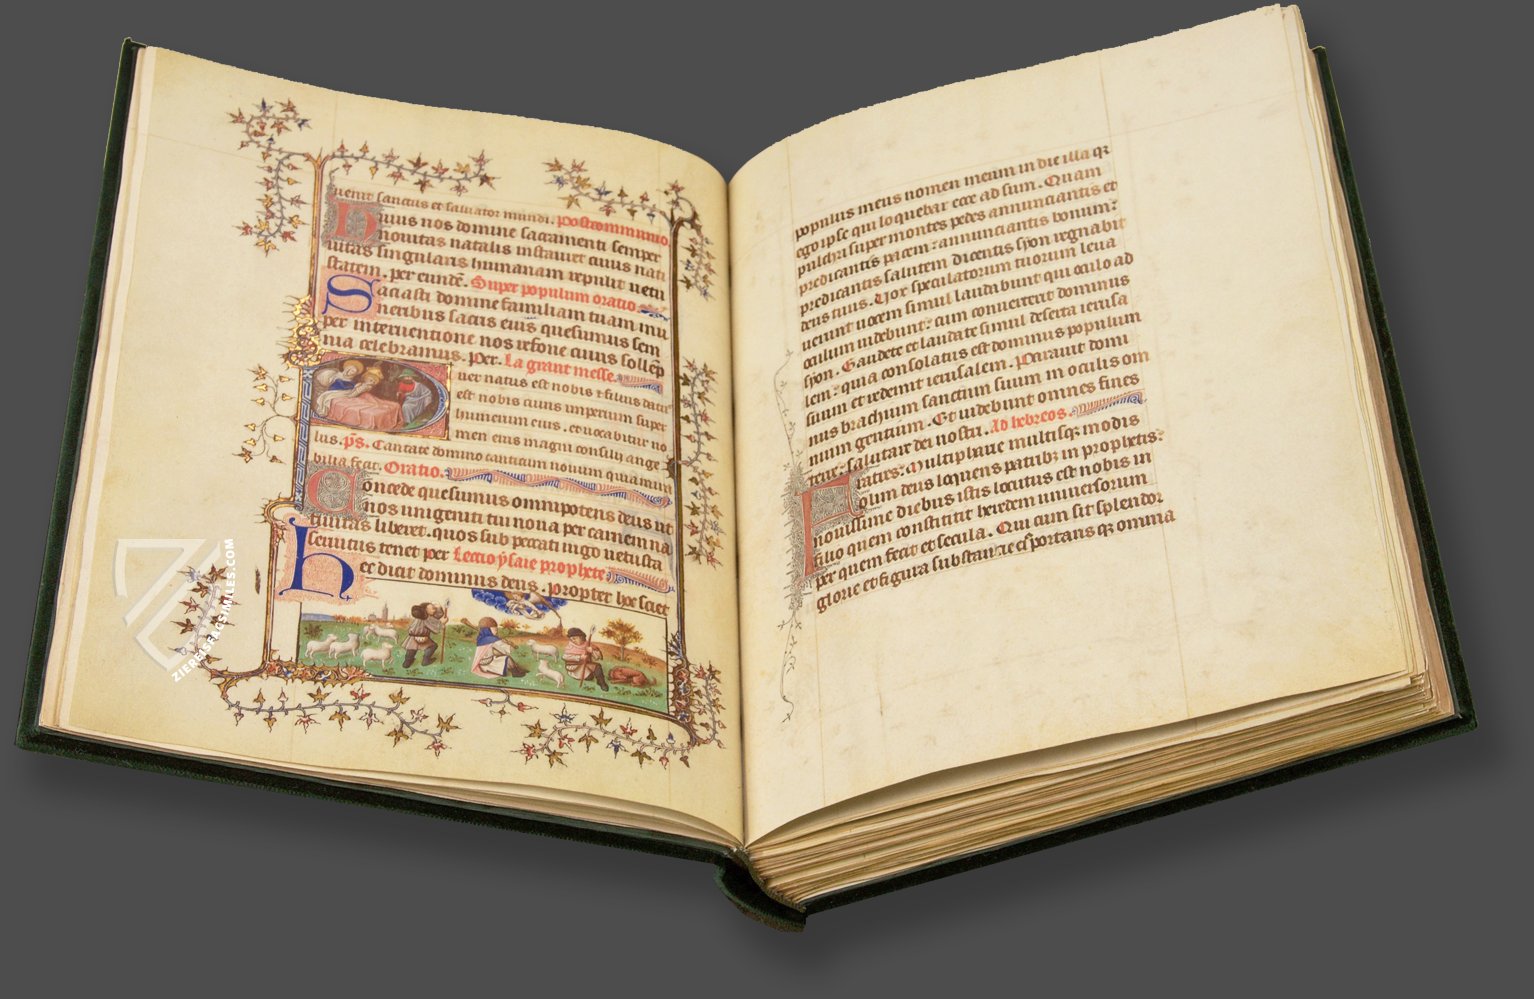 uenit sanctus et saluator mundi. Postcommunio.
Huius nos domine sacramenti semper
nouitas natalis instauret cuius nati
uitas singularis humanam repulit uetu
statem. per eundē. Super populum oratio
Saciasti domine familiam tuam mu
neribus sacris eius quesumus sem
per interuentione nos refoue cuius sollēp
nia celebramus. Per. La grant messe.
Puer natus est nobis et filius datus
est nobis cuius imperium super
humerum eius. et uocabitur no
men eius magni consilij ange
lus. ps. Cantate domino canticum nouum quia mira
bilia fecit. Oratio.
Concede quesumus omnipotens deus ut
nos unigeniti tui noua per carnem na
tiuitas liberet. quos sub peccati iugo uetusta
seruitus tenet per Lectio ysaie prophete
hec dicit dominus deus. propter hoc sciet
populus meus nomen meum in die illa qꝫ
ego ipse qui loquebar ecce ad sum. Quam
pulchri super montes pedes annunciantis et
predicantis pacem: annunciantis bonum:
predicantis salutem dicentis syon regnabit
deus tuus. Uox speculatorum tuorum leua
uerunt uocem simul laudabunt qui oculo ad
oculum uidebunt: cum conuerterit dominus
syon. Gaudete et laudate simul deserta ierusa
lem: quia consolatus est dominus populum
suum et redemit ierusalem. Parauit domi
nus brachium sanctum suum in oculis om
nium gentium. Et uidebunt omnes fines
terre: salutare dei nostri. Ad hebreos.
Fratres: Multipharie multisqꝫ modis
olim deus loquens patribꝫ in prophetis:
nouissime diebus istis locutus est nobis in
filio quem constituit heredem uniuersorum
per quem fecit et secula. Qui cum sit splendor
glorie et figura substantie eiꝰ portans qꝫ omnia
ZIEREISFACSIMILES.COM